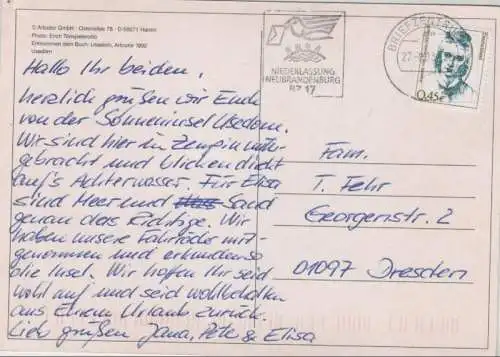 © Artcolor GmbH · Ostenallee 78 · D-59071 Hamm
Photo: Erich Tempsterotto
Entnommen dem Buch: Usedom, Artcolor 1992
Usedom
Hallo Ihr beiden,
herzlich grüßen wir Euch
von der Sonneninsel Usedom.
Wir sind hier in Zempin unter-
gebracht und blicken dicht
auf's Achterwasser. Für Elisa
sind Meer und Sand
genau das Richtige. Wir
haben unsere Fahrräder mit-
genommen und erkunden so
die Insel. Wir hoffen Ihr seid
wohl auf und seid wohlbehalten
aus Eurem Urlaub zurück.
Lieb grüßen Jana, Pete & Elisa
NIEDERLASSUNG
NEUBRANDENBURG
BZ 17
BRIEFZENTRUM
0,45€
Fam.
T. Fehr
Georgenstr. 2
01097 Dresden